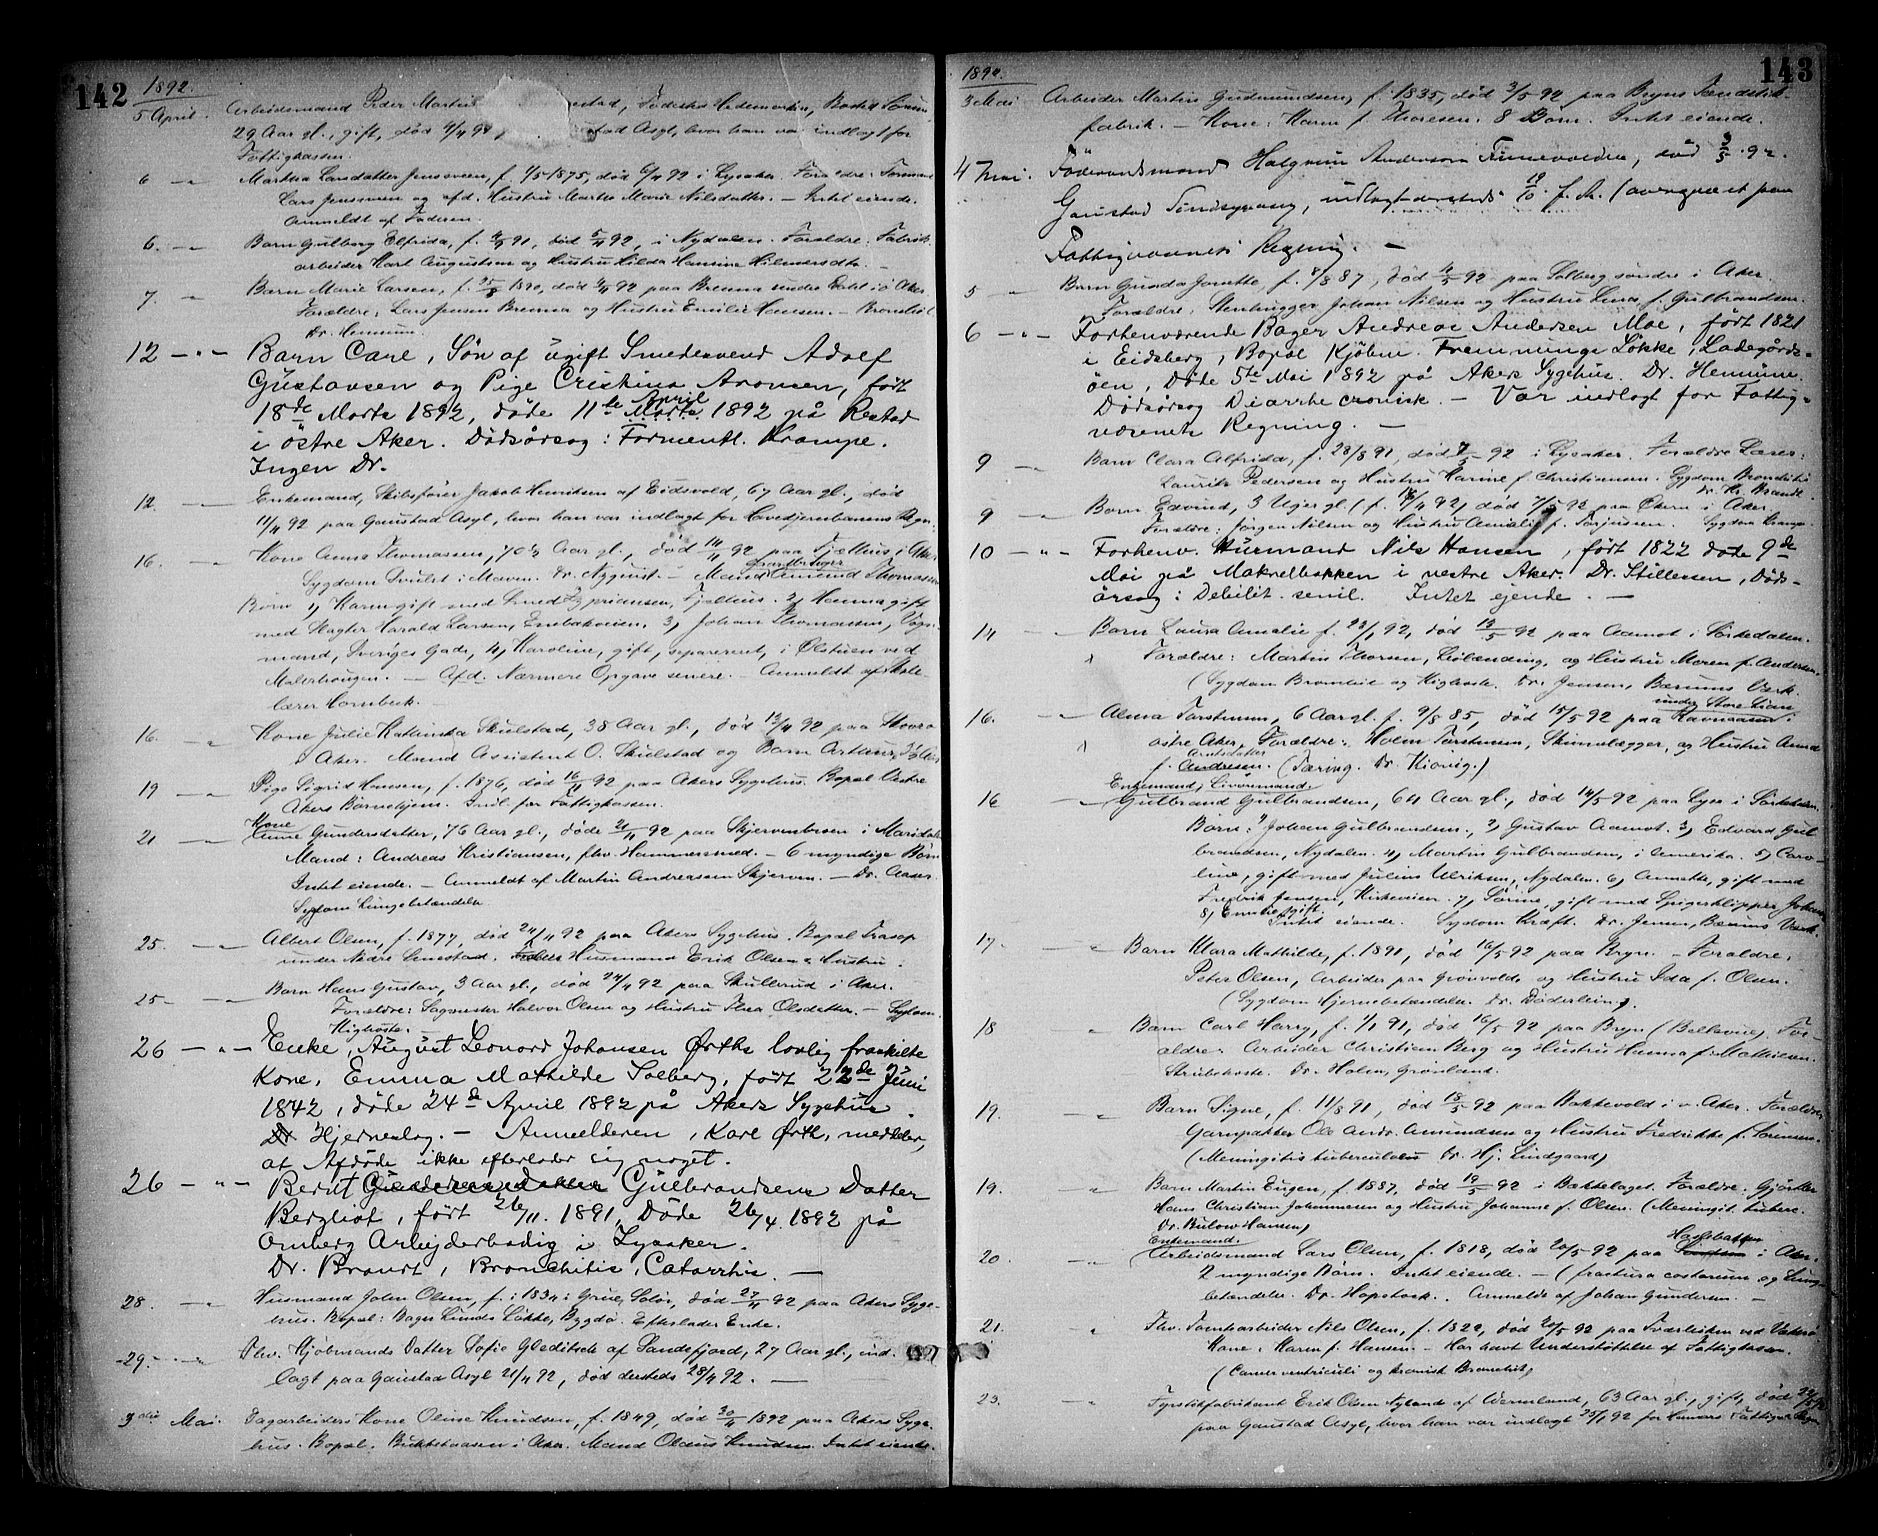 142
1892.
5 April. Arbeidsmand Peder Martin stad, Födested Hedemarken, Bosted
29 Aar gl., gift, död 4/4 92, stad Asyl, hvor han var indlagt for
Fattigkassen.
6 — Martha Larsdatter Jenssveen, f. 1/5 1875, död 6/4 92 i Lysaker. Foreldre: Formand
Lars Jenssveen og afd. Hustru Marthe Marie Nilsdatter. — Intet eiende.
Anmeldt af Faderen.
6. — Barn Gulborg Elfrida, f. 91, död 5/4 92, i Nydalen. Foreldre: Fabrik-
arbeider Karl Augustsen og Hustru Hilda Hansine Hilmersdtr. —
7. — Barn Marie Larsen, f. 1890, död 92 paa Brenna søndre i Ø. Aker
Foreldre: Lars Jensen Brenna og Hustru Emilie Hansen. — Bronchit
Dr. Hennum.
12 — " — Barn Carl, Sön af ugift Smedesvend Adolf
Gustavsen og Pige Cristina Aronsen, født
18de Marts 1892, døde 11te Marts April 1892 på Restad
i östre Aker. Dødsårsag: Formentl. Krampe.
Ingen Dr.
12. — Enkemand, Skibsfører Jakob Henriksen af Eidsvold, 67 Aar gl., død
11/4 92 paa Gaustad Asyl, hvor han var indlagt for Hovedjernbanens Regn.
16. — Kone Anna Thomassen, 70½ Aar gl., död 14/4 92 paa Fjellhus i Aker
Sygdom Svulst i Maven. Dr. Nyquist. — Mand Gaardbruger Amund Thomassen
Børn 1) Karen gift med Smed Zypriansen, Fjellhus. 2) Hanna gift
med Slagter Harald Larsen, Enebakveien, 3) Johan Thomassen, Vogn-
mand, Sveriges Gade, 4) Karoline, gift, separeret, i Ølstuen ved
Malerhaugen. — Afd. Nærmere Opgave senere. — Anmeldt af Skole-
lærer Hornbeck. —
16. — Kone Julie Kathinka Skulstad, 38 Aar gl., död 13/4 92 paa
i Aker. Mand Assistent O. Skulstad og Barn Arthur,
19 — Pige Sigrid Hansen, f. 1876, död 16/4 92 paa Akers Sygehus. Bopæl Vestre
Akers Børnehjem. Indl. for Fattigkassen.
21 — Kone Anne Gundersdatter, 76 Aar gl., døde 92 paa Skjervenbroen i Maridalen
Mand: Andreas Kristiansen, fhv. Hammersmed. — 6 myndige Børn
Intet eiende. — Anmeldt af Martin Andreassen Skjerven. — Dr. Aaser.
Sygdom Lungebetændelse
25. — Albert Olsen, f. 1877, död 24/4 92 paa Akers Sygehus. Bopæl Trasop
under Nedre Linestad. Husmand Erik Olsen & Hustru.
25 — Barn Hans Gustav, 3 Aar gl., död 24/4 92 paa Skullerud i Aker.
Foreldre: Sagmester Halvor Olsen og Hustru Thea Olsdatter. — Sygdom
Kighoste. —
26 — " — Enke, August Leonard Johansen Ørths lovlig fraskilte
Kone, Emma Mathilde Solberg, født 22de Juni
1842, døde 24de April 1892 på Akers Sygehus.
Dr Hjerneslag. — Anmelderen, Karl Ørth, meddeler,
at Afdøde ikke efterlader sig noget.
26 — " — Bernt Gulbrandsens Datter
Bergliot, født 26/11. 1891, Døde 26/4. 1892 på
Omberg Arbejderbolig i Lysaker.
Dr. Brandt, Bronchitis, Catarrhis. —
28. — Husmand John Olsen, f. i 1834 i Grue, Solör, död 27/4 92 paa Akers Syge-
hus. Bopæl: Bager Linds Løkke, Bygdö. Efterlader Enke.
29. — Fhv. Kjøbmands Datter Sofie Gleditsch af Sandefjord, 27 Aar gl., ind-
lagt paa Gaustad Asyl 21/4 92, død dersteds 28/4 92. —
3die Mai. Dagarbeiders Kone Oline Knudsen, f. 1849, död 30/4 1892 paa Akers Syge-
hus. Bopæl. i Aker. Mand Olaus Knudsen. Intet eiende.
143
1892.
3 Mai Arbeider Martin Gudmundsen, f. 1835, död 3/5 92 paa Bryns Tændstik-
fabrik. — Kone: Karen f. Thoresen. 8 Børn. Intet eiende.
4 Mai. Föderaadsmand Halgrim Andersen Finnevolden, död 3/5 92.
Gaustad Sindsygeasyl, indlagt dersteds 19/10 f. A. (overgaaet paa
Fattigvæsenets Regning. —
5 — Barn Gunda Janette, f. 1/8 87, död 4/5 92 paa Solberg søndre i Aker.
Foreldre: Stenhugger Johan Nilsen og Hustru Lina f. Gulbrandsen.
6 — " — Forhenværende Bager Andreas Andersen Moe, født 1821
i Eidsberg, Bopæl Kjøbm. Fremmings Løkke, Ladegårds-
öen, Døde 5te Mai 1892 på Akers Sygehus. Dr. Hennum.
Dødsårsag Diarrhe cronisk. — Var indlagt for Fattig-
væsenets Regning. —
9 — Barn Clara Alfrida, f. 28/8 91, død 7/5 92 i Lysaker. Foreldre Læsser
Lauritz Pedersen og Hustru Karine f. Christiansen. Sygdom Bronchitis
Dr. Kr. Brandt.
9 — Barn Edvind, 3 Uger gl. (f. 16/4 92) död 7/5 92 paa Økern i Aker.
Foreldre: Jörgen Nilsen og Hustru Amalie f. Torjussen. Sygdom Krampe
10 — " — Forhenv. Husmand Nils Hansen, født 1822 døde 9de
Mai på Makrelbekken i vestre Aker. Dr. Stillesen, Døds-
årsag: Debilit. senil. Intet ejende. —
14 — Barn Laura Amalie f. 92, död 13/5 92 paa Aamot i Sörkedalen.
Foreldre: Martin Thorsen, Leilænding, og Hustru Maren f. Andersen
(Sygdom Bronchit og Kighoste. Dr. Jensen, Bærums Værk.
16. — Alma Torstensen, 6 Aar gl. f. 9/8 85, död 15/5 92 paa Ravnaasen under Store Lian i
østre Aker. Foreldre: Holm Torstensen, Skinnelægger, og Hustru Anna
f. Andresen Arntsdatter. (Tæring. Dr. Kiønig.)
16 — Enkemand, Livöremand. Gulbrand Gulbrandsen, 64 Aar gl., död 14/5 92 paa Lysø i Sörkedalen.
Børn: 1) Johan Gulbrandsen, 2) Gustav Aamot. 3) Edvard Gul-
brandsen, Nydalen. 4) Martin Gulbrandsen, i Amerika. 5) Caro-
line, gift med Julius Ulriksen, Nydalen. 6) Annette, gift med
Fredrik Jensen, Kirkeveien. 7) Sørine, gift med Spigerklipper Johan
8) Emilie, ugift. Intet eiende. Sygdom Kræft. Dr. Jensen, Bærums Værk.
17. — Barn Klara Mathilde, f. 1891, död 16/5 92 paa Bryn. — Foreldre,
Peter Olsen, Arbeider paa Grønvold, og Hustru Ida f. Olsen.
(Sygdom Hjernebetændelse. Dr. Döderlein).
18 " Barn Carl Harry, f. 1/1 91, död 16/5 92 paa Bryn (Bellevue), For-
ældre: Arbeider Christian Berg og Hustru Hanna f. Mathisen.
Strubehoste. Dr. Holm, Grønland.
19. — Barn Signe, f. 11/8 91, död 18/5 92 paa Bakkevold i v. Aker. Foreldre,
Garnpakker Ole Andr. Amundsen og Hustru Fredrikke f. Sørensen.
(Meningitis tuberculosis Dr. Hj. Lindgaard)
19. " Barn Martin Eugen, f. 1887, død 19/5 92 i Bækkelaget. Foreldre. Gjørtler
Hans Christian Johannesen og Hustru Johanne f. Olsen. (Meningit. tuberc.
Dr. Bülow Hansen)
20. — Enkemand. Arbeidsmand Lars Olsen, f. 1818, död 20/5 92 paa i Aker.
2 myndige Børn. Intet eiende. — (fractura costarum og Lunge-
betændelse. Dr. Hopstock. Anmeldt af Johan Gundersen. —
21. " Fhv. Tomtearbeider Nils Olsen, f. 1822, död 20/5 92 paa Tværbekken ved Vækerö
Kone: Karen f. Hansen. — Har havt Understøttelse af Fattigkassen.
(Cancer ventriculi og kronisk Bronchit)
23. — Fyrstikfabrikant Erik Olsen Nyland af Wermland, 63 Aar gl., gift, död 22/5 92
paa Gaustad Asyl, hvor han var indlagt 92 for Fattigv. Regn.